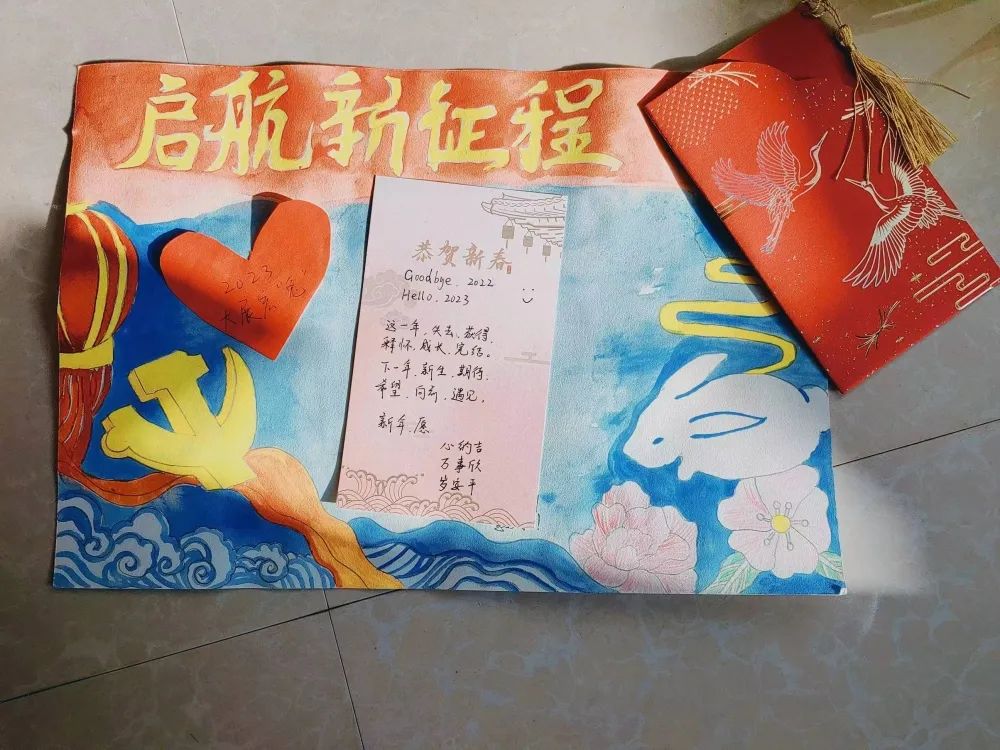 启航新征程
2023.兔
大展
恭贺新春
Goodbye. 2022
Hello. 2023
这一年,失去,获得,
释怀,成长,完结。
下一年,新生,期待,
希望,向前,遇见。
新年,愿
心纳吉
万事欣
岁安平